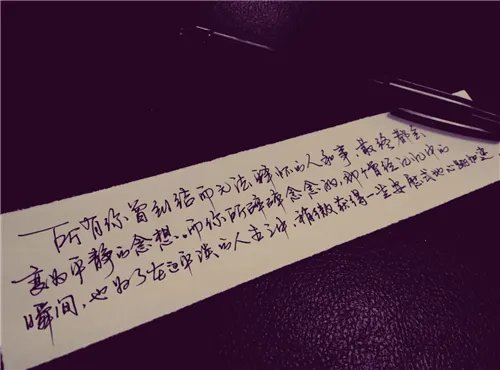 所有你曾纠结而无法释怀的人和事，最终都会
变为平静的念想。而你所谆谆念念的，那曾经记忆中的
瞬间，也为了在这平淡的人生中，稍微获得一些安慰或心跳加速。